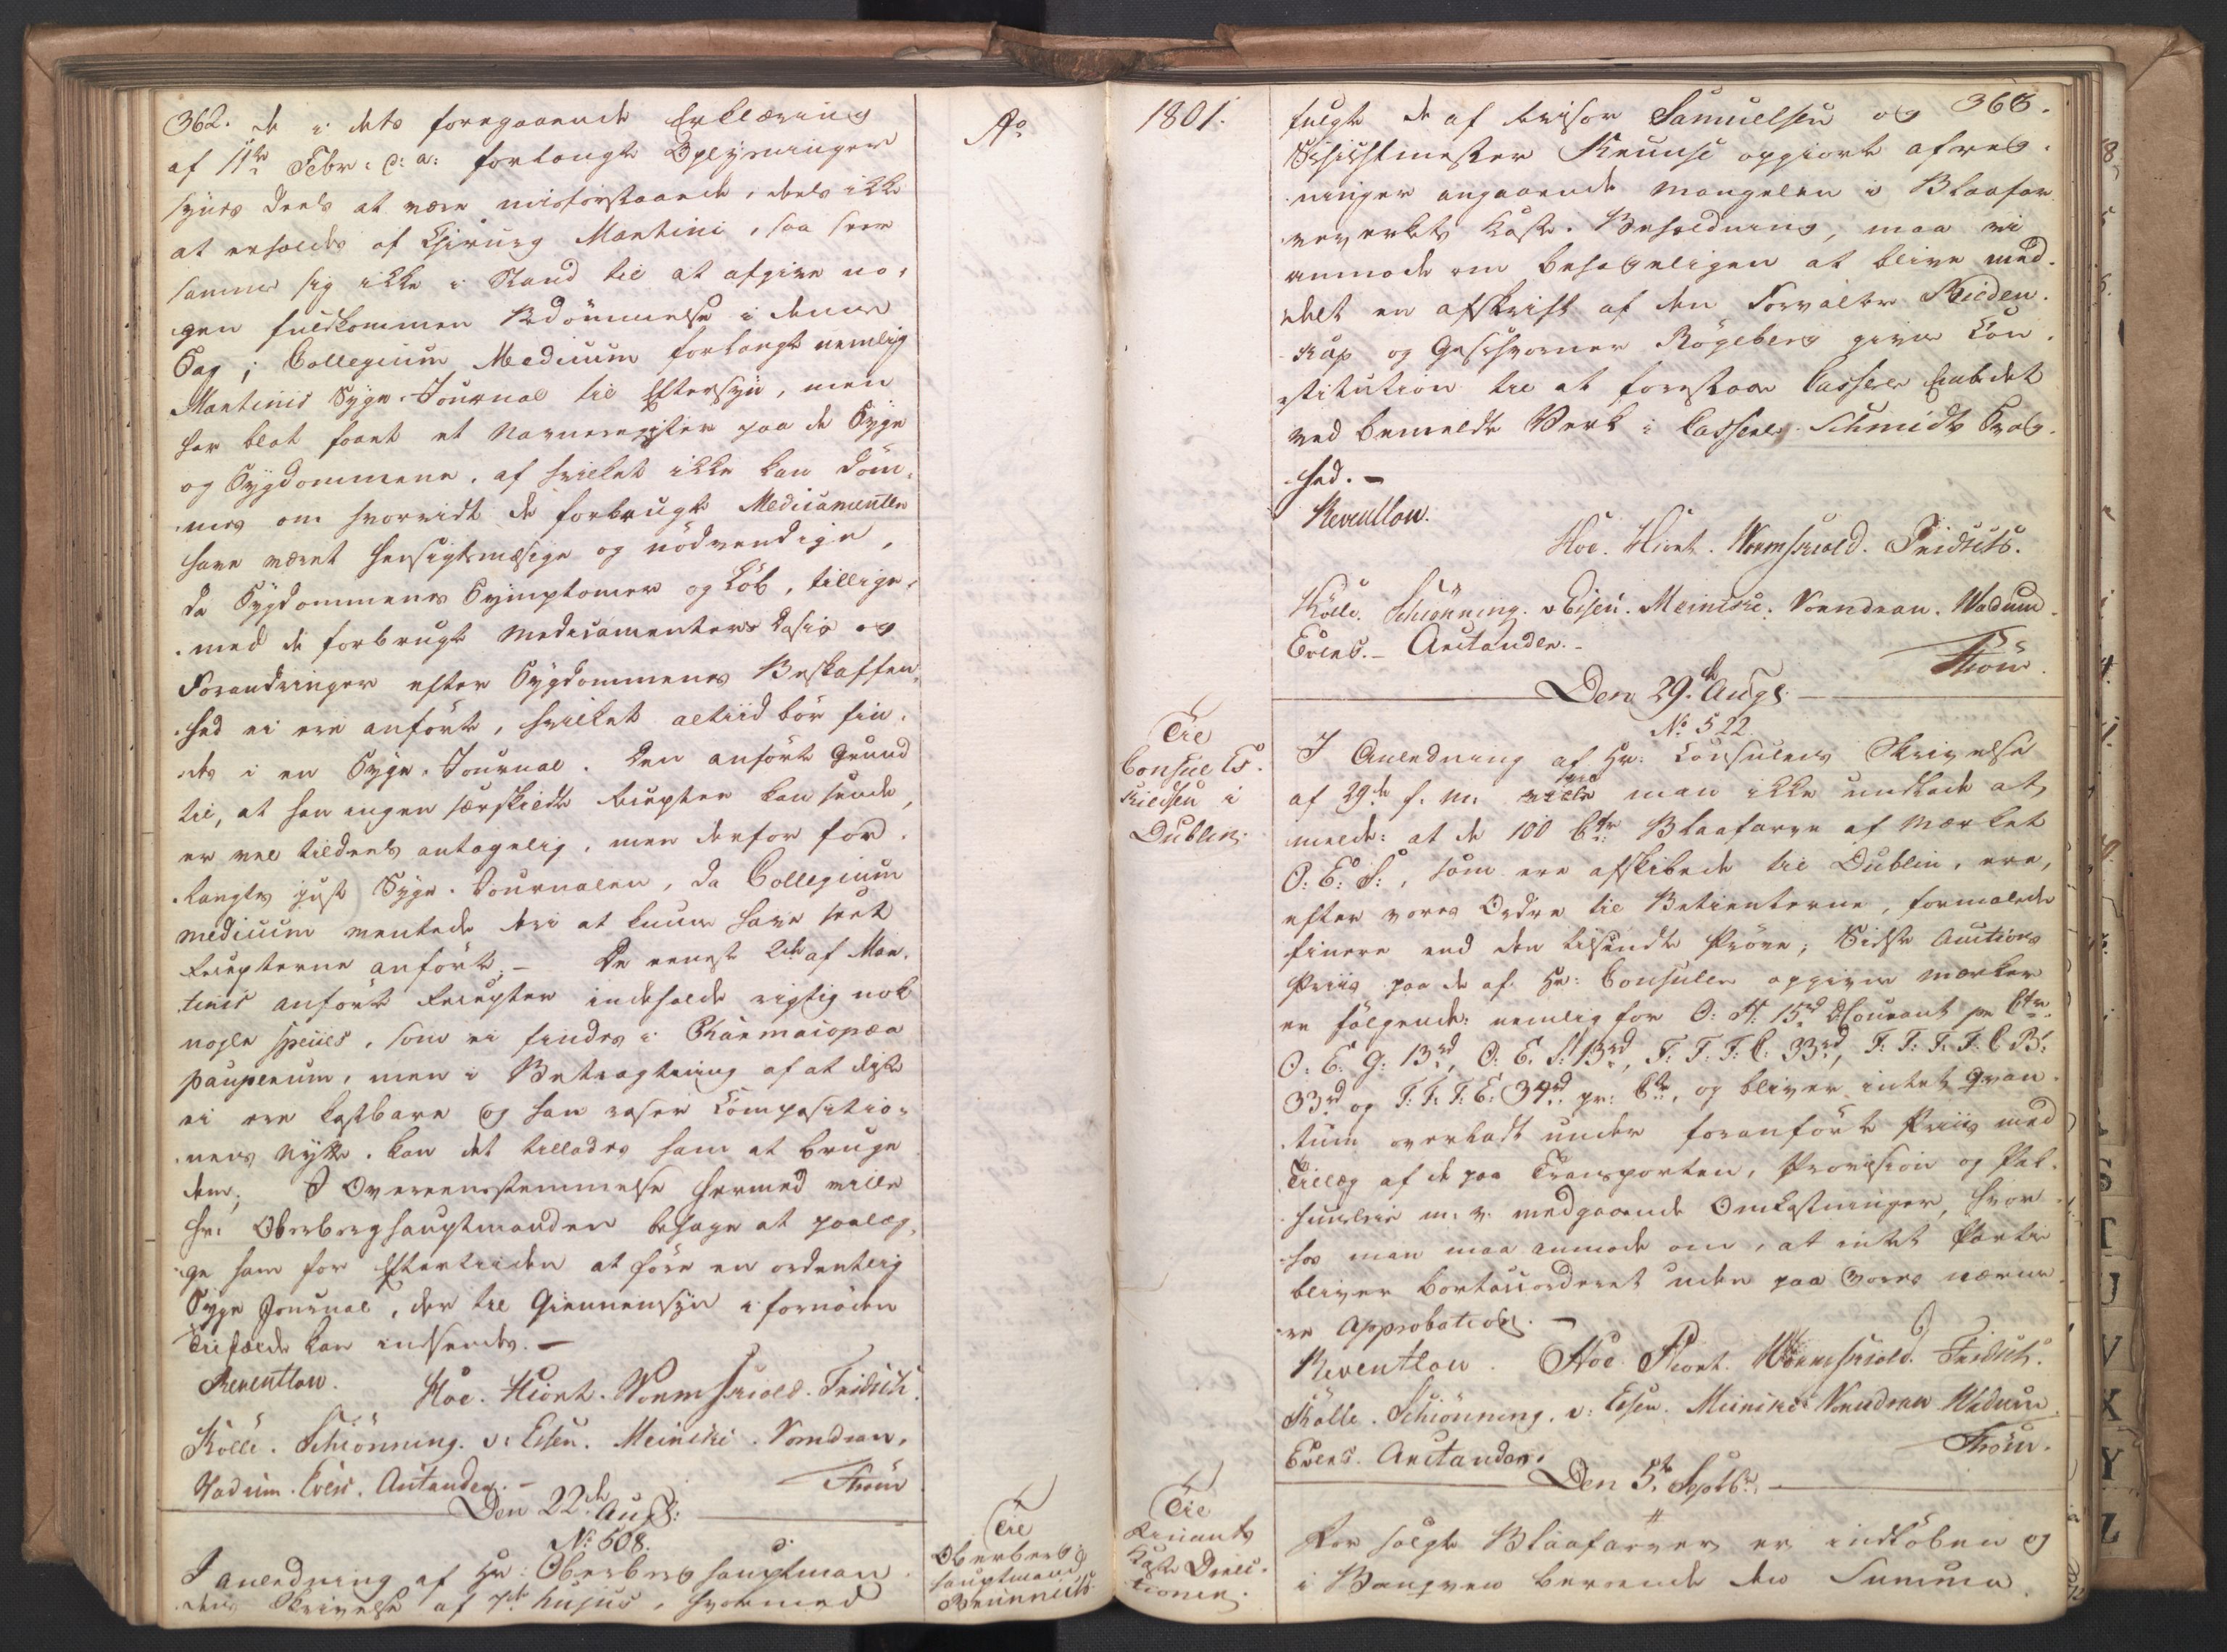 362. de i dets foregaaende Erklæring
af 11te Febr: d: a: forlangte Oplysninger
synes deels at være misforstaaede, deels ikke
at erholdes af Chirurg Martini, saa seer
samme sig ikke i Stand til at afgive no-
gen fuldkommen Bedömmelse i denne
Sag; Collegium Medicum forlangte nemlig
Martinis Syge-Journal til Eftersyn, men
har blot faaet et Navneregister paa de Syge
og Sygdommene, af hvilket ikke kan döm-
mes om hvorvidt de forbrugte Medicamenter
have været hensigtsmæsige og nödvendige,
da Sygdommenes Symptomer og Löb, tillige-
med de forbrugte Medicamenters Dosis og
Forandringer efter Sygdommenes Beskaffen-
hed ei ere anförte, hvilket altiid bör fin-
des i en Syge-Journal. Den anförte Grund
til, at han ingen særskildte Recepter kan sende,
er vel tildeels antagelig, men derfor for-
langtes just Syge-Journalen, da Collegium
medicum ventede deri at kunne have seet
Recepterne anförte. — De eneste 2de af Mar-
tinis anförte Recepter indeholde rigtig nok
nogle species, som ei findes i Pharmacopæa
pauperum, men i Betragtning af at disse
ei ere kostbare og han roser Compositio-
nens Nytte, kan det tillades ham at bruge
dem; I Overeensstemmelse hermed ville
Hr: Oberberghauptmanden behage at paalæg-
ge ham for Eftertiden at före en ordentlig
Syge Journal, der til Giennemsyn i fornöden
Tilfælde kan indsendes. —
Reventlow. Hoe. Hiort. Wormskiold. Fridsch.
Kölle. Schiönning. v: Essen. Meinicke. Vomdran.
Wadum. Evers. Arctander. —
Thröm
Den 22de Aug:
No: 508.
I anledning af Hr: Oberberghauptman-
dens Skrivelse af 7de hujus, hvormed
Ao
Til
Oberberg-
hauptmand
Brunnich
1801.
Til
Consul Es-
kildsen i
Dublin.
Til
Finants
Kasse Direc-
tionen.
fulgte de af Revisor Samuelsen og 363.
Krusse opgiorte afreg-
ninger angaaende Mangelen i Blaafar-
veverkets Kasse-Beholdning, maa vi
anmode om behageligen at blive med-
deelt en afskrivt af den Forvalter Rieden-
Kap og Geschworner Bögeberg givne Con-
stitution til at forestaae Casseer Embedet
ved bemeldte Verk i Casseer Schmidts Svag-
hed. —
Reventlow.
Hoe. Hiort. Wormskiold. Fridsch.
Kölle. Schiönning. v Essen. Meinicke. Vomdran. Wadum.
Evers. — Arctander. —
Thröm.
Den 29de Aug:
No: 522.
I Anledning af Hr: Consulens Skrivelse
af 29de f. M. man ikke undlade at
melde: at de 100 Ctr Blaafarve af Mærket
O: E: S:, som ere afskibede til Dublin, ere,
efter vores Ordre til Betienterne, formalede
finere end den tilsendte Pröve; Sidste Auctions
Priis paa de af Hr: Consulen opgivne Mærker
er fölgende: nemlig for O: H: 15rd dCourant pr Ctr
O: E: G: 13rd, O: E: S: 13rd, F: F: F: C: 33rd, F: F: F: F: C B:
33rd og F: F: F: E: 34rd pr: Ctr, og bliver intet Qvan-
tum overladt under foranförte Priis med
Tillæg af de paa Transporten, Provision og Pak-
huusleie m: v: medgaaende Omkostninger, hvor-
hos man maa anmode om, at intet Partie
bliver bortauctioneret uden paa vores nærme-
re Approbation. —
Reventlow. Hoe. Hiort. Wormskiold. Fridsch.
Kölle. Schiönning. v: Essen. Meinicke. Vomdran. Wadum.
Evers. Arctander.
Thröm.
Den 5te Septbr: —
For solgte Blaafarver er indlöben og
i Banqven beroende den Summa